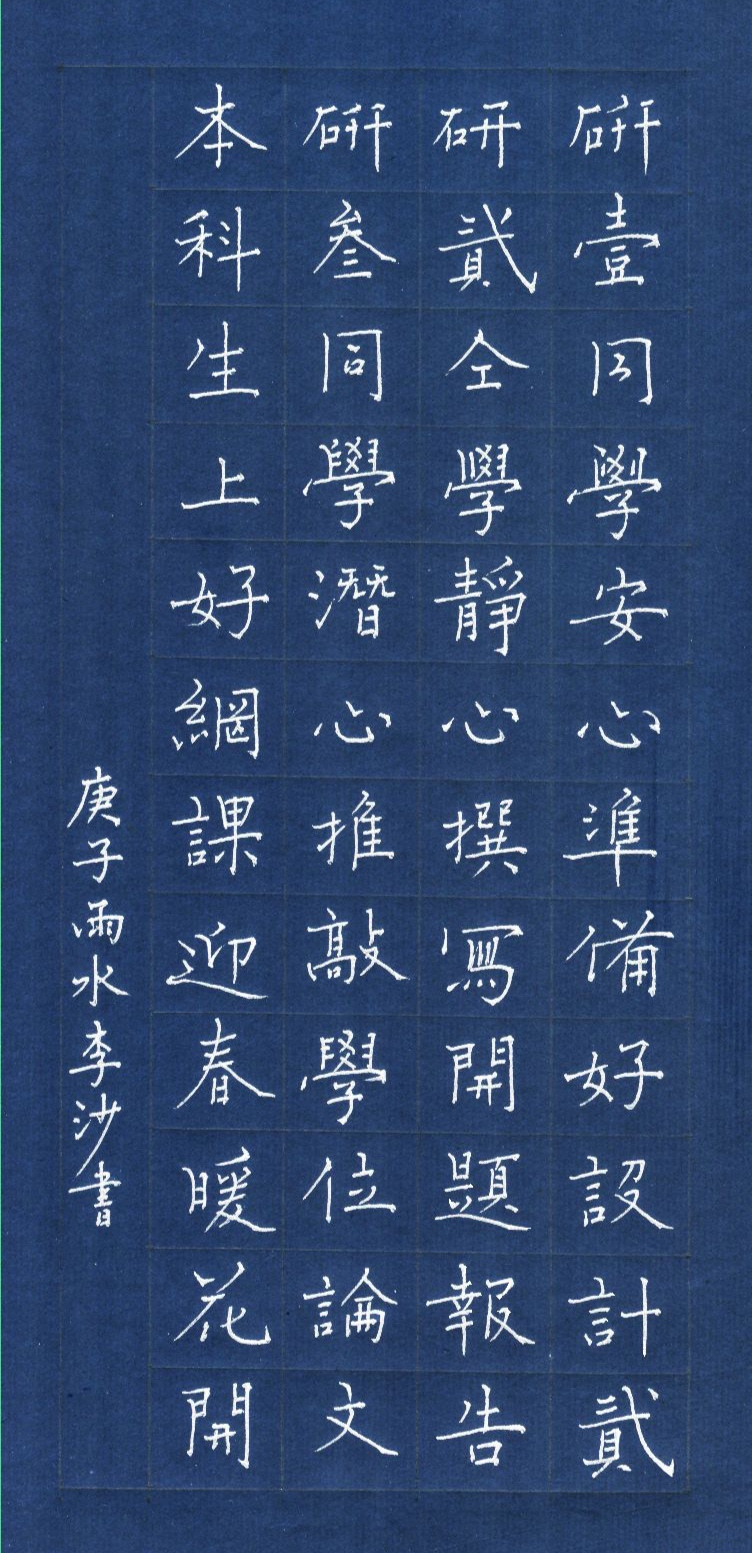 研壹同學安心準備好設計貳
研貳仝學靜心撰寫開題報告
研叁同學潛心推敲學位論文
本科生上好網課迎春暖花開
庚子雨水李沙書